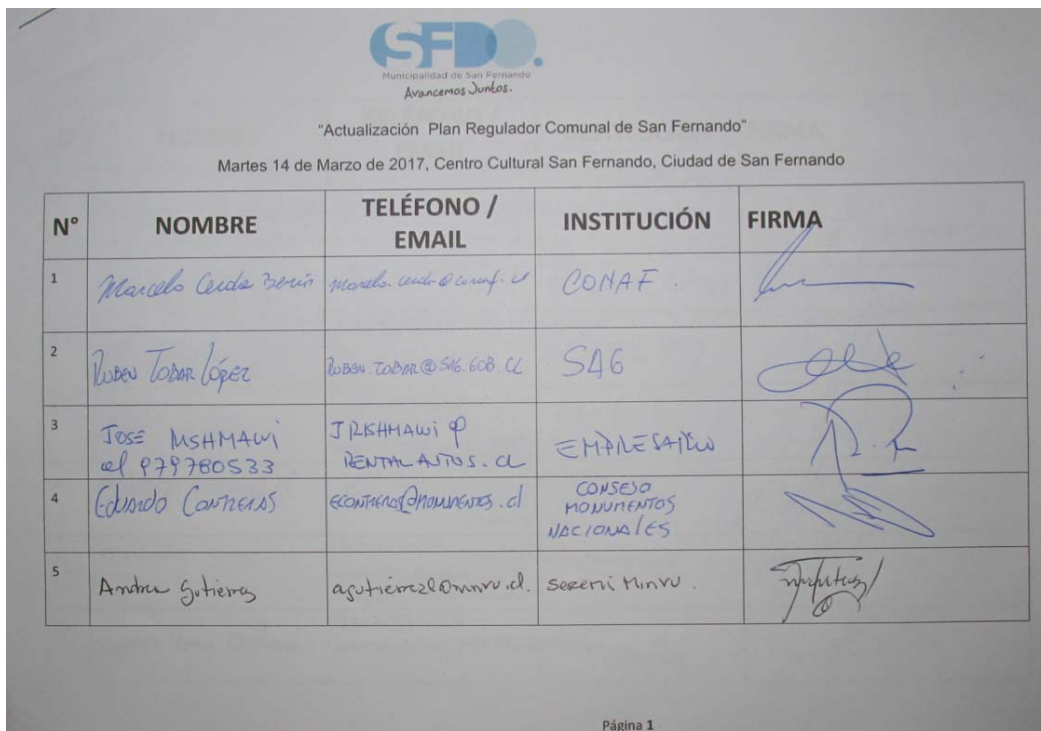 SFDO.
Municipalidad de San Fernando
Avancemos Juntos.
"Actualización Plan Regulador Comunal de San Fernando"
Martes 14 de Marzo de 2017, Centro Cultural San Fernando, Ciudad de San Fernando
N° NOMBRE TELÉFONO / EMAIL INSTITUCIÓN FIRMA
1 Marcelo Cerda CONAF.
2 Ruben Tobar López RUBEN.TOBAR@SAG.GOB.CL SAG
3 JOSE
cel 979780533 RENTALAUTOS.CL EMPRESARIO
4 Eduardo Contreras CONSEJO
MONUMENTOS
NACIONALES
5 Andrea Gutiérrez Seremi Minvu.
Página 1